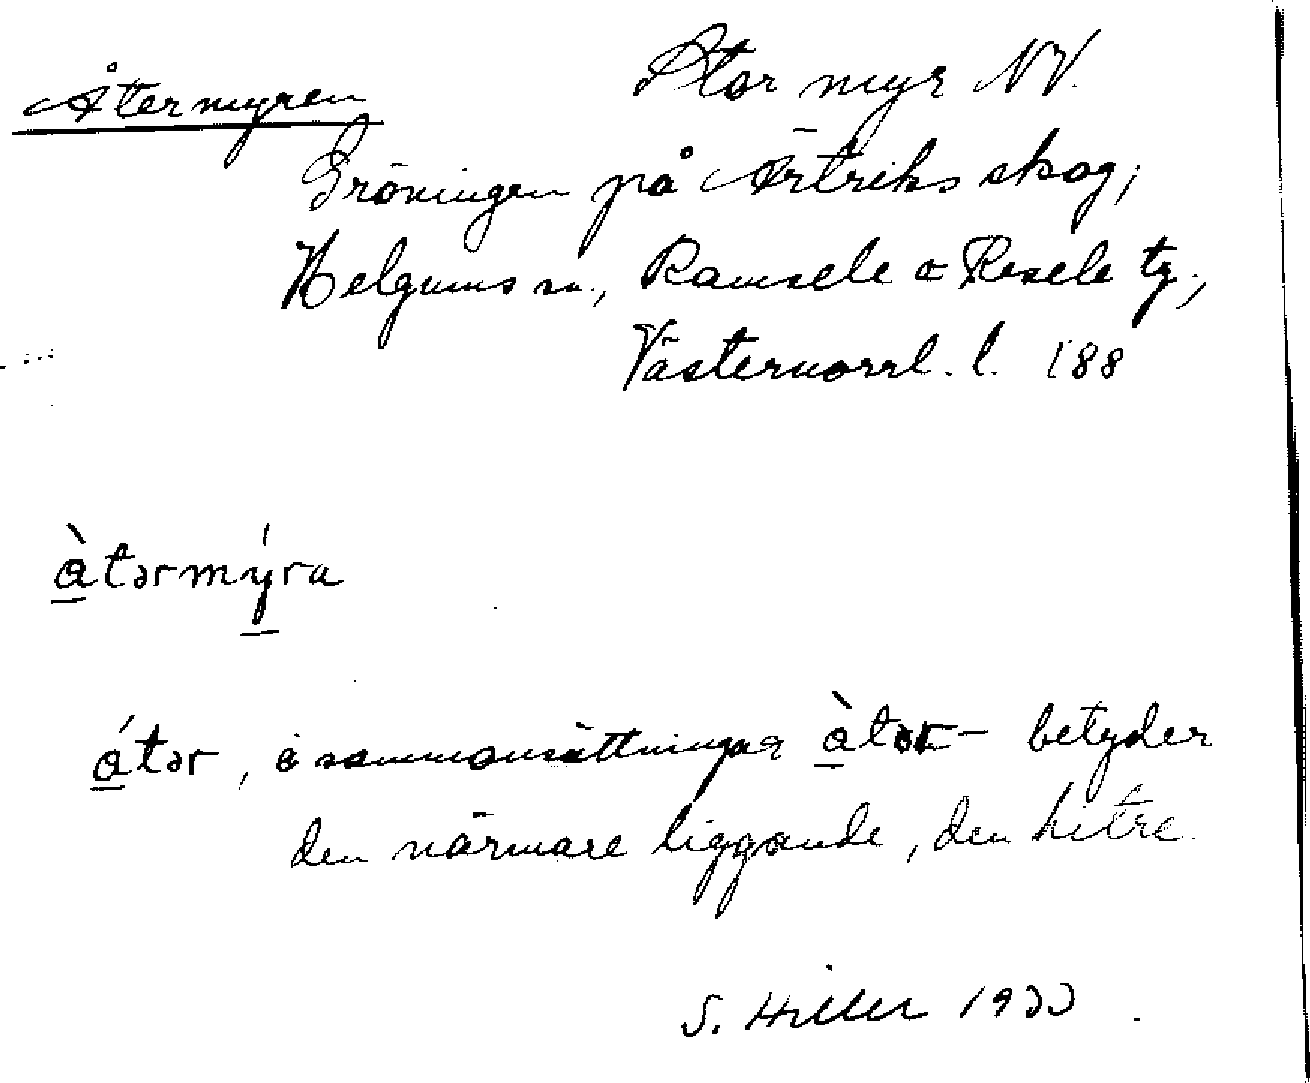 Återmyren
Stor myr NV.
Gröningen på Ärtriks skog,
Helgums sn., Ramsele o Resele tg.,
Västernorrl. l. 188
àtərmýra
átər, i sammansättningar àtər- betyder
den närmare liggande, den hitre.
S. Hiller 1933